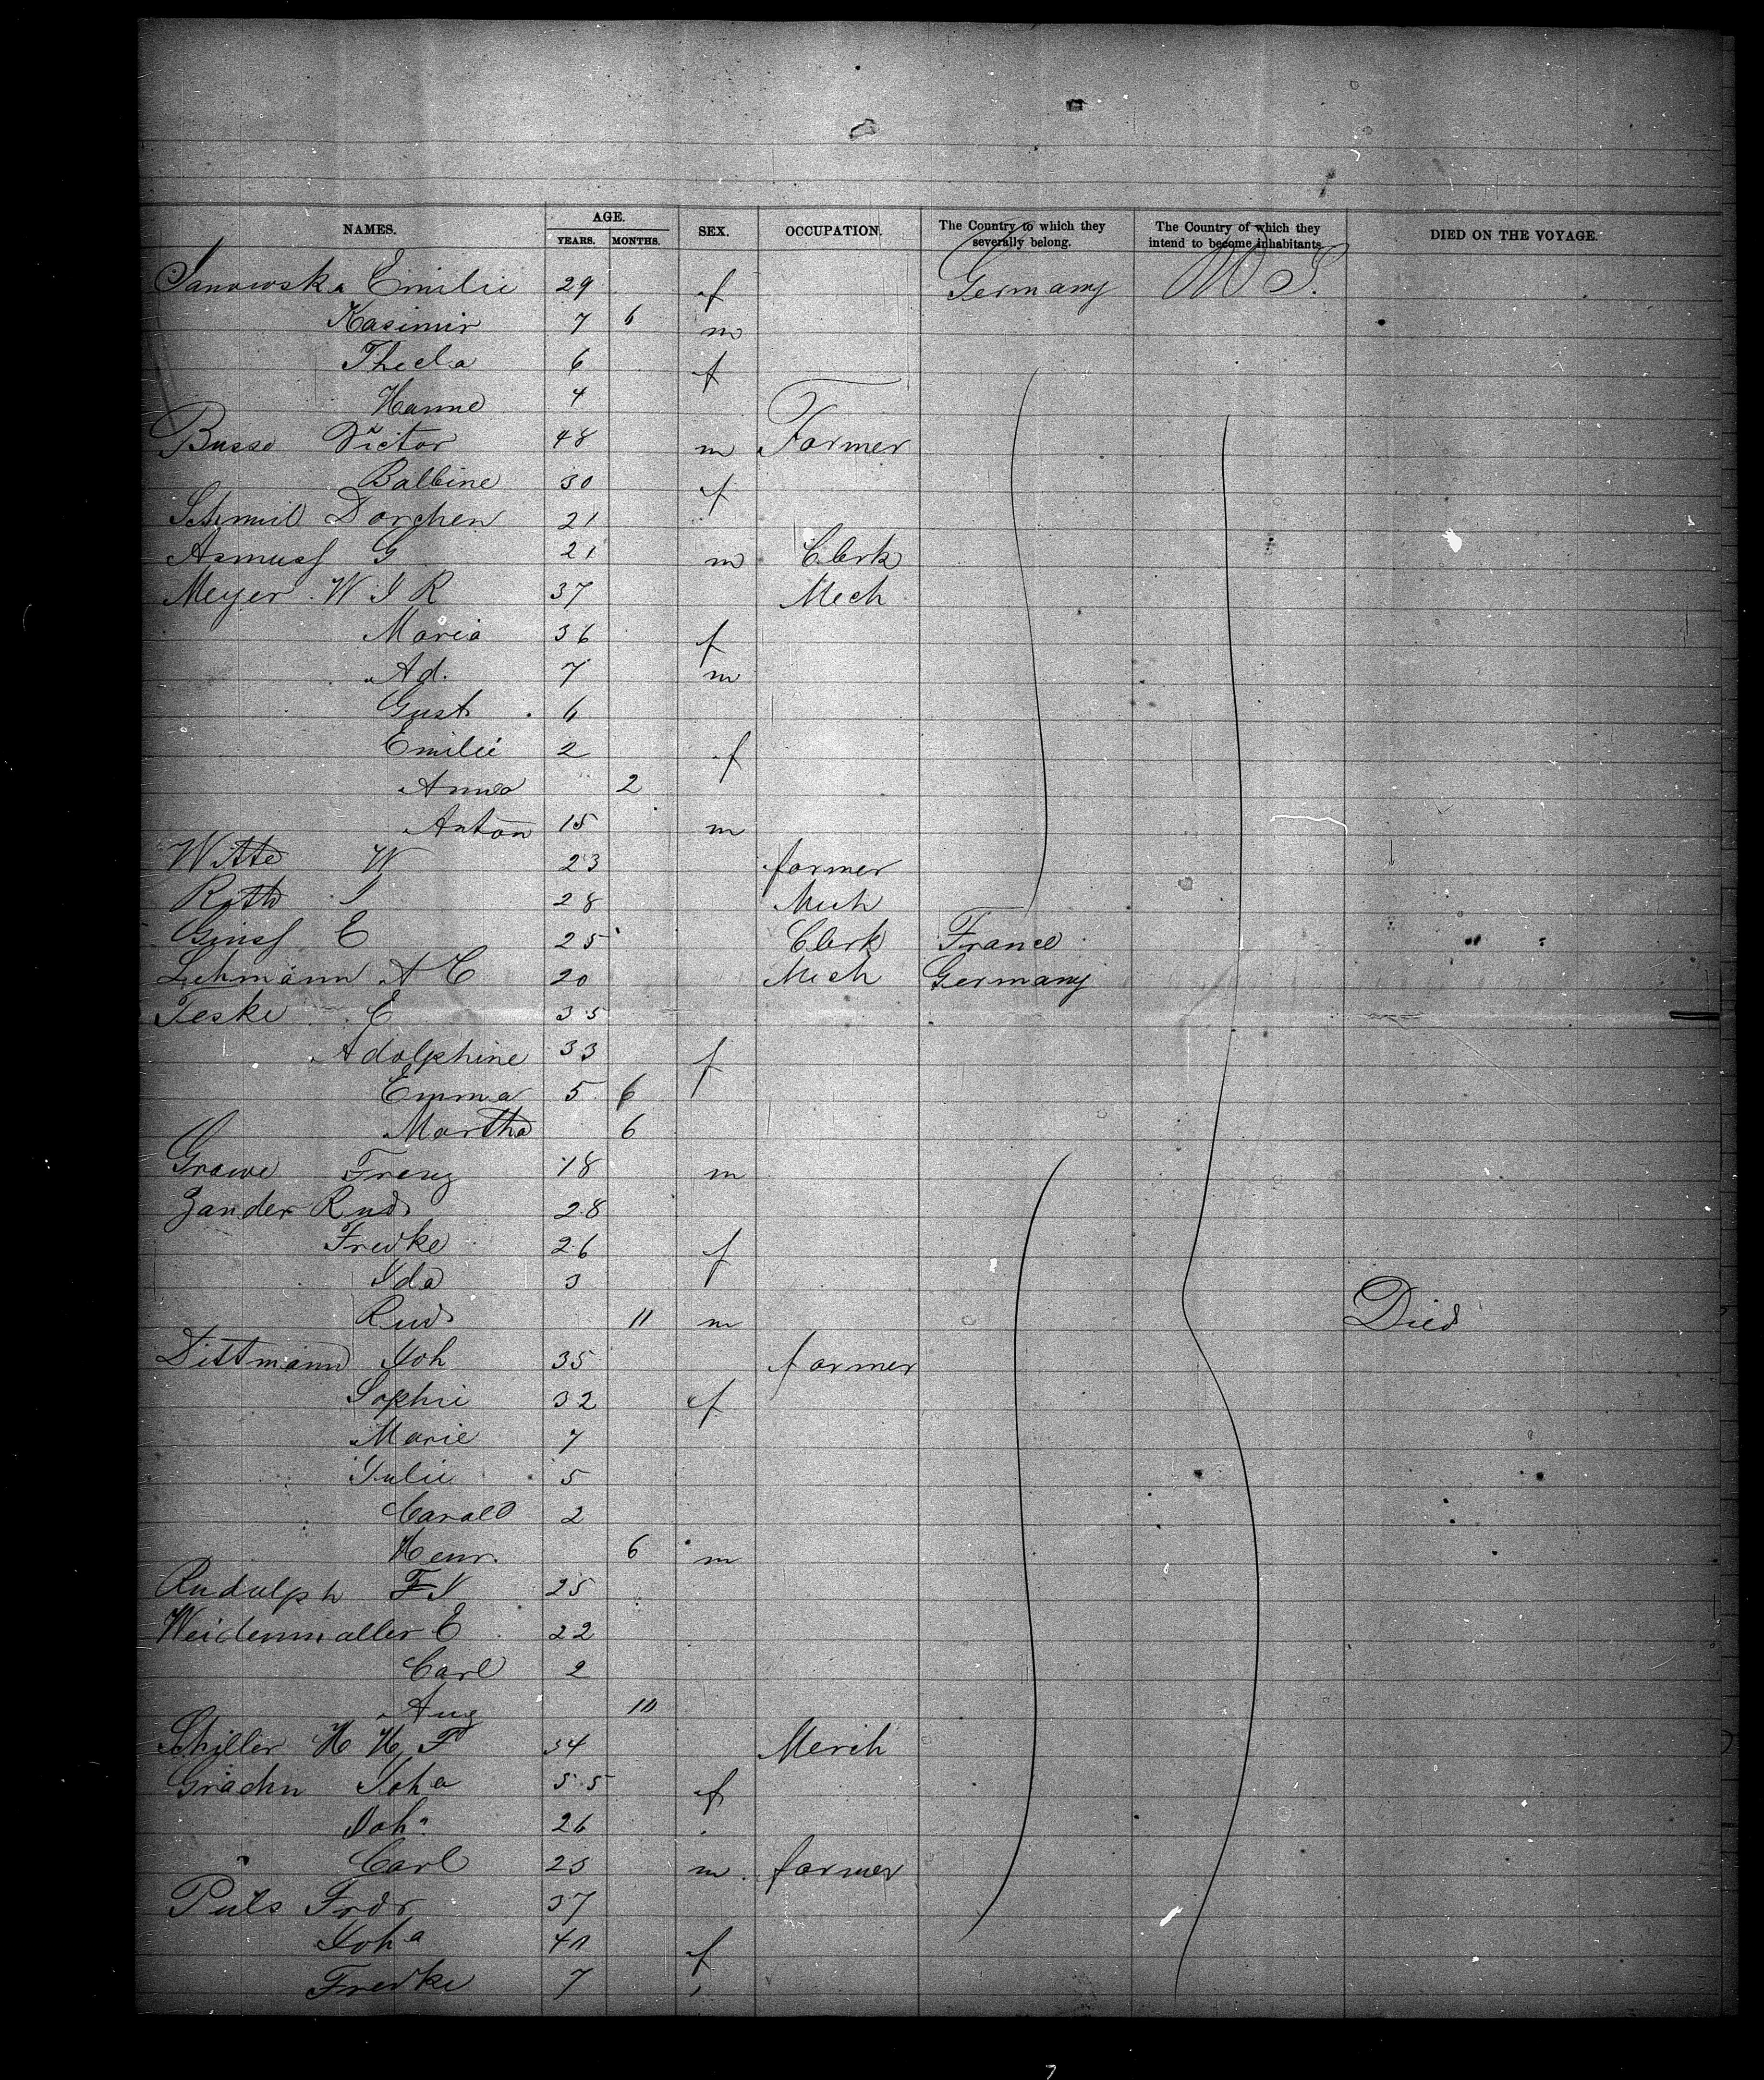 NAMES. AGE. YEARS. MONTHS. SEX. OCCUPATION. The Country to which they severally belong. The Country of which they intend to become inhabitants. DIED ON THE VOYAGE.
Janowska Emilie 29 f Germany U S.
Kasimir 7 6 m
Thecla 6 f
Hanne 4
Busse Victor 48 m Farmer
Balbine 30 f
Dorchen 21
Asmuss G 21 m Clerk
Meyer W J R 37 Mech
Maria 36 f
Ad. 7 m
Gust 6
Emilie 2 f
Anna 2
Anton 15 m
Witte W 23 farmer
Roth J 28 Mech
E 25 Clerk France
Lehmann A C 20 Mech Germany
Teske E 35
Adolphine 33 f
Emma 5 6
Martha 6
Grawe Franz 18 m
Zander Rud 28
Fredke 26 f
Ida 3
Rud 11 m Died
Dittmann Joh 35 farmer
Sophie 32 f
Marie 7
Julie 5
Carol 2
Henr. 6 m
Rudolph F J 25
Weidenmaller E 22
Carl 2
Aug
Schiller H H F 34 Merch
Grachn Joha 55 f
Joha 26
Carl 25 m farmer
Puls Frdr 37
Joha 40 f
Fredke 7